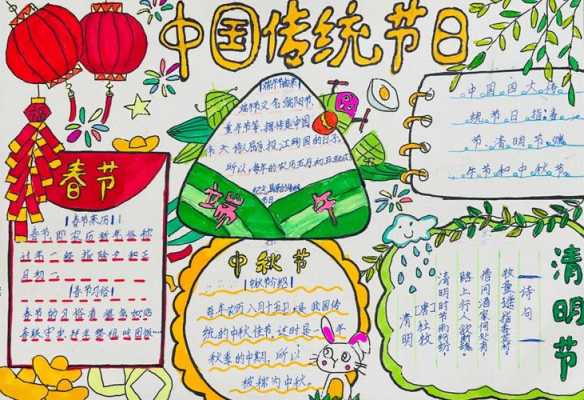 中国传统节日
春节
【春节来历】
春节即农历新年,俗称
过年,一般指除夕和正
月初一。
【春节习俗】
春节的习俗有
端午节由来
端午节又名端阳节、
重午节等,据传是中国
伟大诗人屈原投江殉国的日子。
所以,每年的农历五月初五就成
纪念屈原的传统
节日
端午
中国四大传
统节日指春
节、清明节、端
午节和中秋节。
中秋节
每年农历八月十五日,是我国传
统的中秋佳节。这时是一年
秋季的中期,所以
被称为中秋。
清明节
诗句
清明
[唐]杜牧
清明时节雨纷纷,
路上行人欲断魂。
借问酒家何处有,
牧童遥指杏花村。